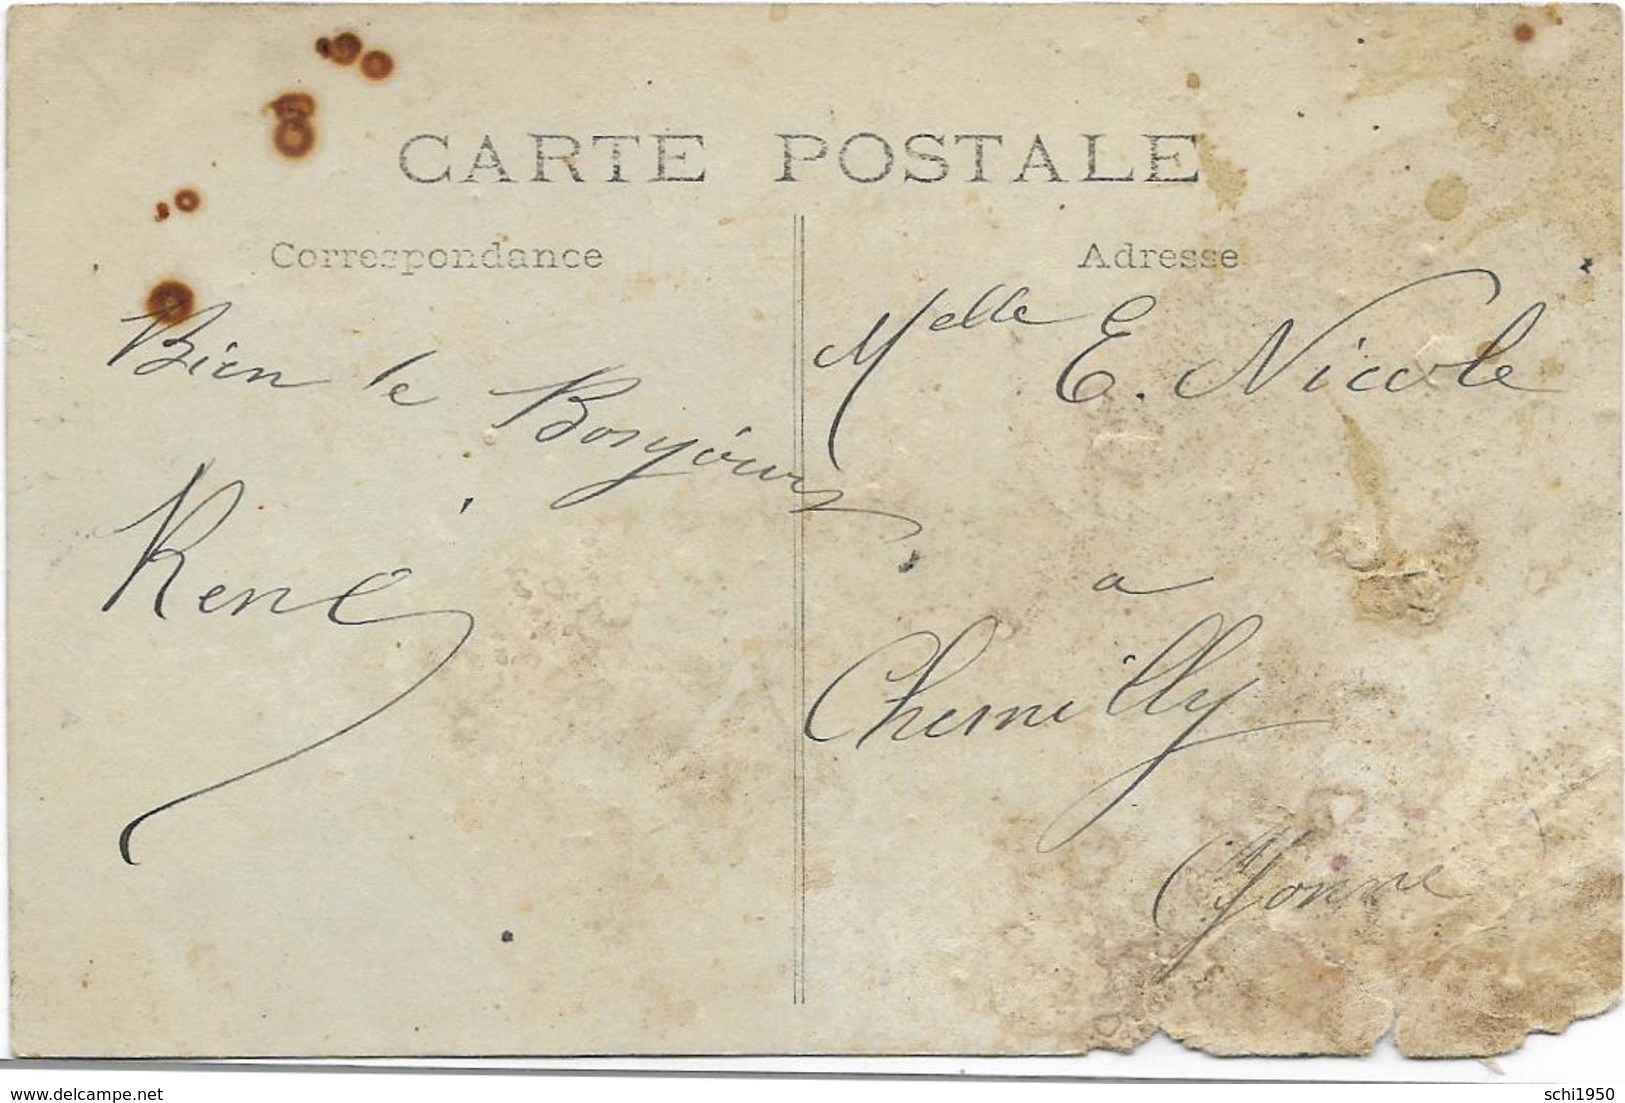 CARTE POSTALE
Correspondance
Adresse
Bien le Bonjour
René
Melle E. Nicole
a
Chemilly
Yonne
delcampe.net
schi1950